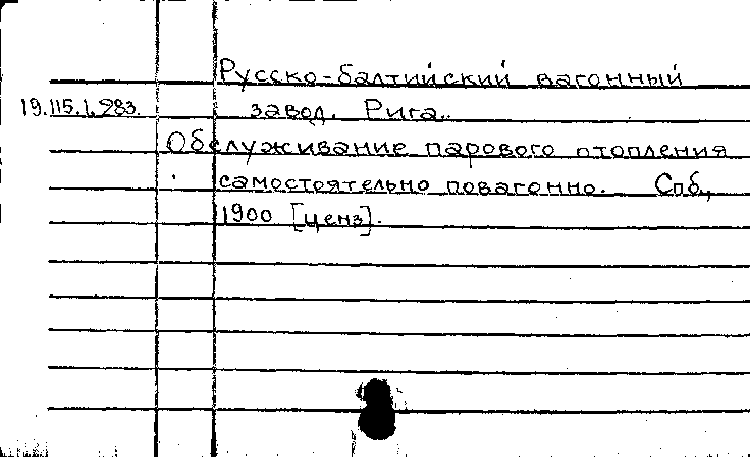 Русско-балтийский вагонный
19.115.1.283. завод. Рига.
Обслуживание парового отопления
самостоятельно повагонно. Спб.,
1900 [ценз].